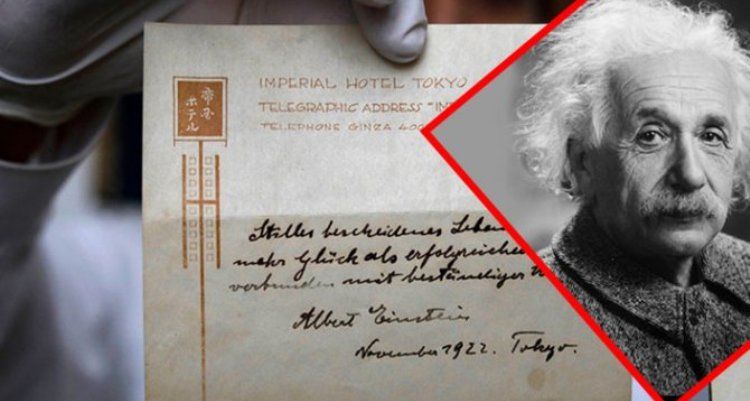 帝国
ホテル
IMPERIAL HOTEL TOKYO
TELEGRAPHIC ADDRESS "IM
TELEPHONE GINZA 400
Stilles bescheidenes Leben
mehr Glück als erfolgreiches
verbunden mit beständiger
Albert Einstein
November 1922. Tokyo.